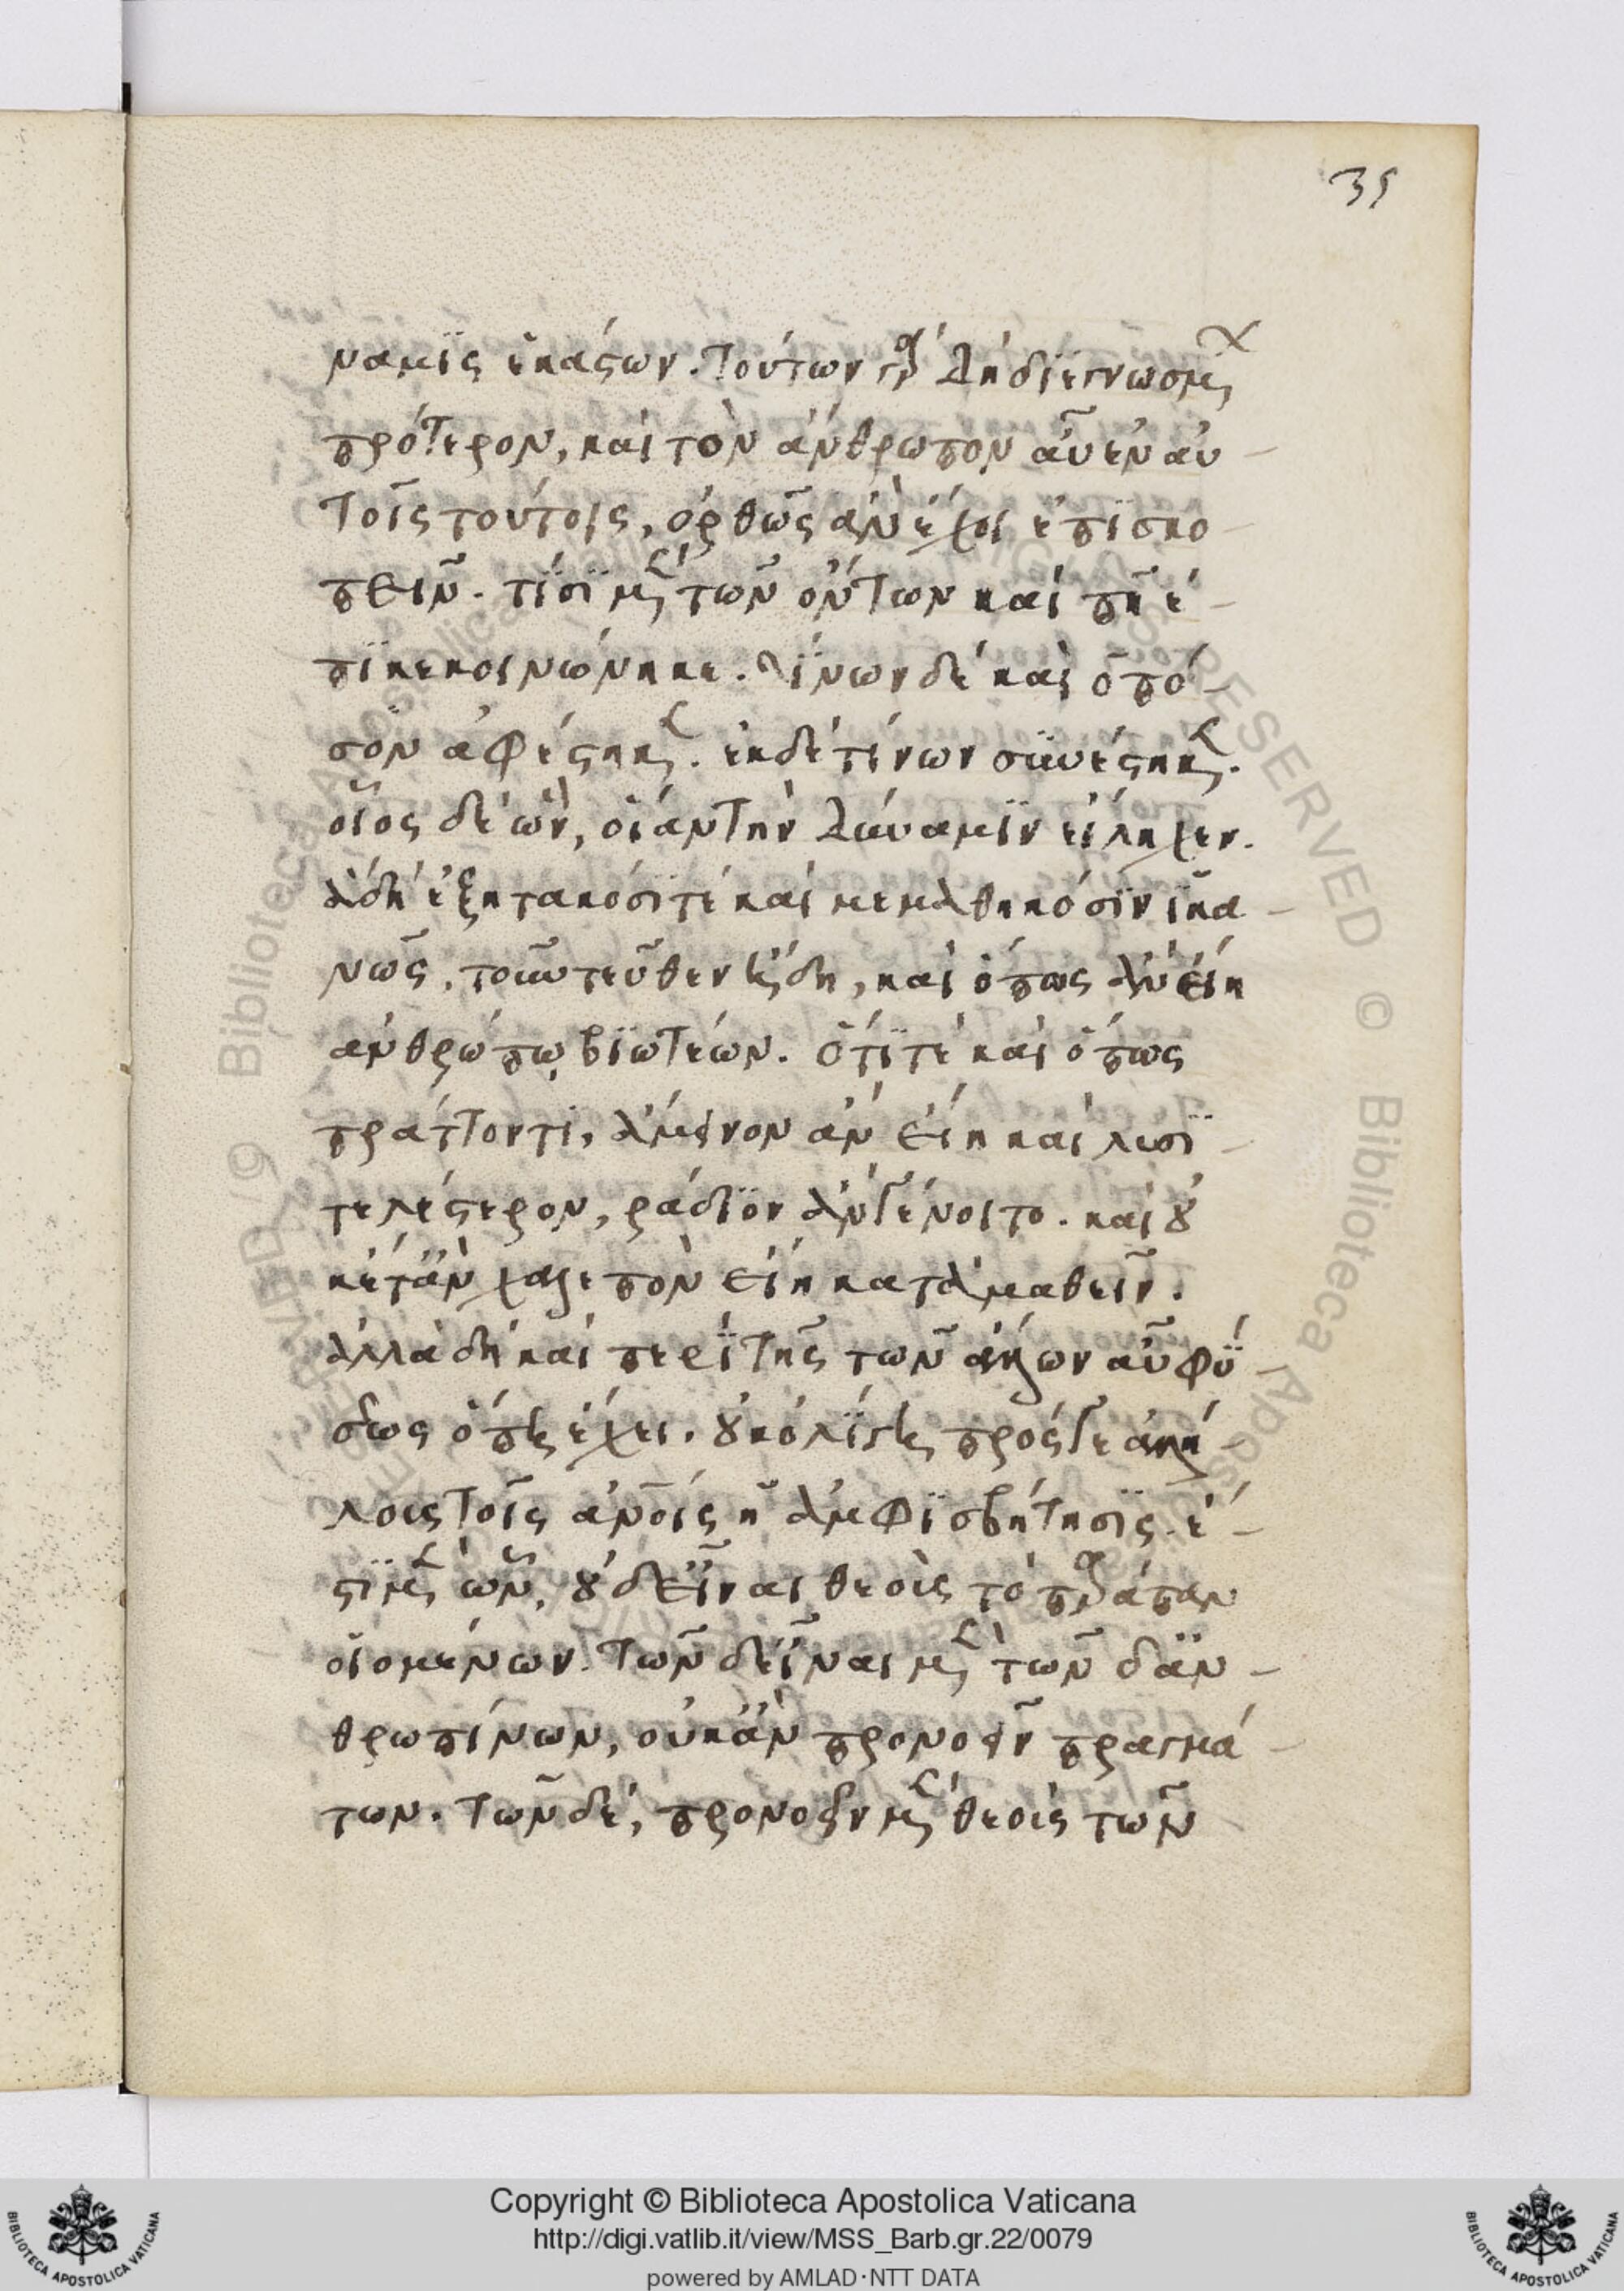 35
ναμις ἑκάστων. τούτων γὰρ δὴ διεγνωσμένων
πρότερον, καὶ τὸν ἄνθρωπον αὖ ἐν αὐ-
τοῖς τούτοις, ὀρθῶς ἂν ἔχοι ἐπισκο-
πεῖν. τίσι μὲν τῶν ὄντων καὶ πῆ ἐ-
πικεκοινώνηκε. τίνων δὲ καὶ ὁπό-
σον ἀφέστηκεν. ἐκ δὲ τίνων συνέστηκεν.
οἷος δὲ ὢν, οἵαν τὴν δύναμιν εἴληχεν.
ἃ δὴ ἐξητακόσι τε καὶ μεμαθηκόσιν ἱκα-
νῶς, τοὐντεῦθεν ἤδη, καὶ ὅπως ἂν εἴη
ἀνθρώπῳ βιωτέων. ὅτι τε καὶ ὅπως
πράττοντι, ἄμεινον ἂν εἴη καὶ λυσι-
τελέστερον, ῥάδιον ἂν γένοιτο. καὶ οὐ
κέτ' ἂν χαλεπὸν εἴη καταμαθεῖν.
ἀλλὰ δὴ καὶ περὶ τῆς τῶν ὅλων αὖ φύ-
σεως ὅπῃ ἔχει. οὐκ ὀλίγη πρός γε ἀλλή-
λοις τοῖς ἀνοις ἡ ἀμφισβήτησις. ἔ-
στι μὲν ὧν, οὐδ' εἶναι θεοὺς τὸ παράπαν
οἰομένων. τῶν δ' εἶναι μὲν τῶν δ' ἀν-
θρωπίνων, οὐκ ἂν προνοεῖν πραγμά-
των. τῶν δὲ, προνοεῖν μὲν θεοὺς τῶν
Copyright © Biblioteca Apostolica Vaticana
http://digi.vatlib.it/view/MSS_Barb.gr.22/0079
powered by AMLAD·NTT DATA
BIBLIOTECA APOSTOLICA VATICANA
BIBLIOTECA APOSTOLICA VATICANA